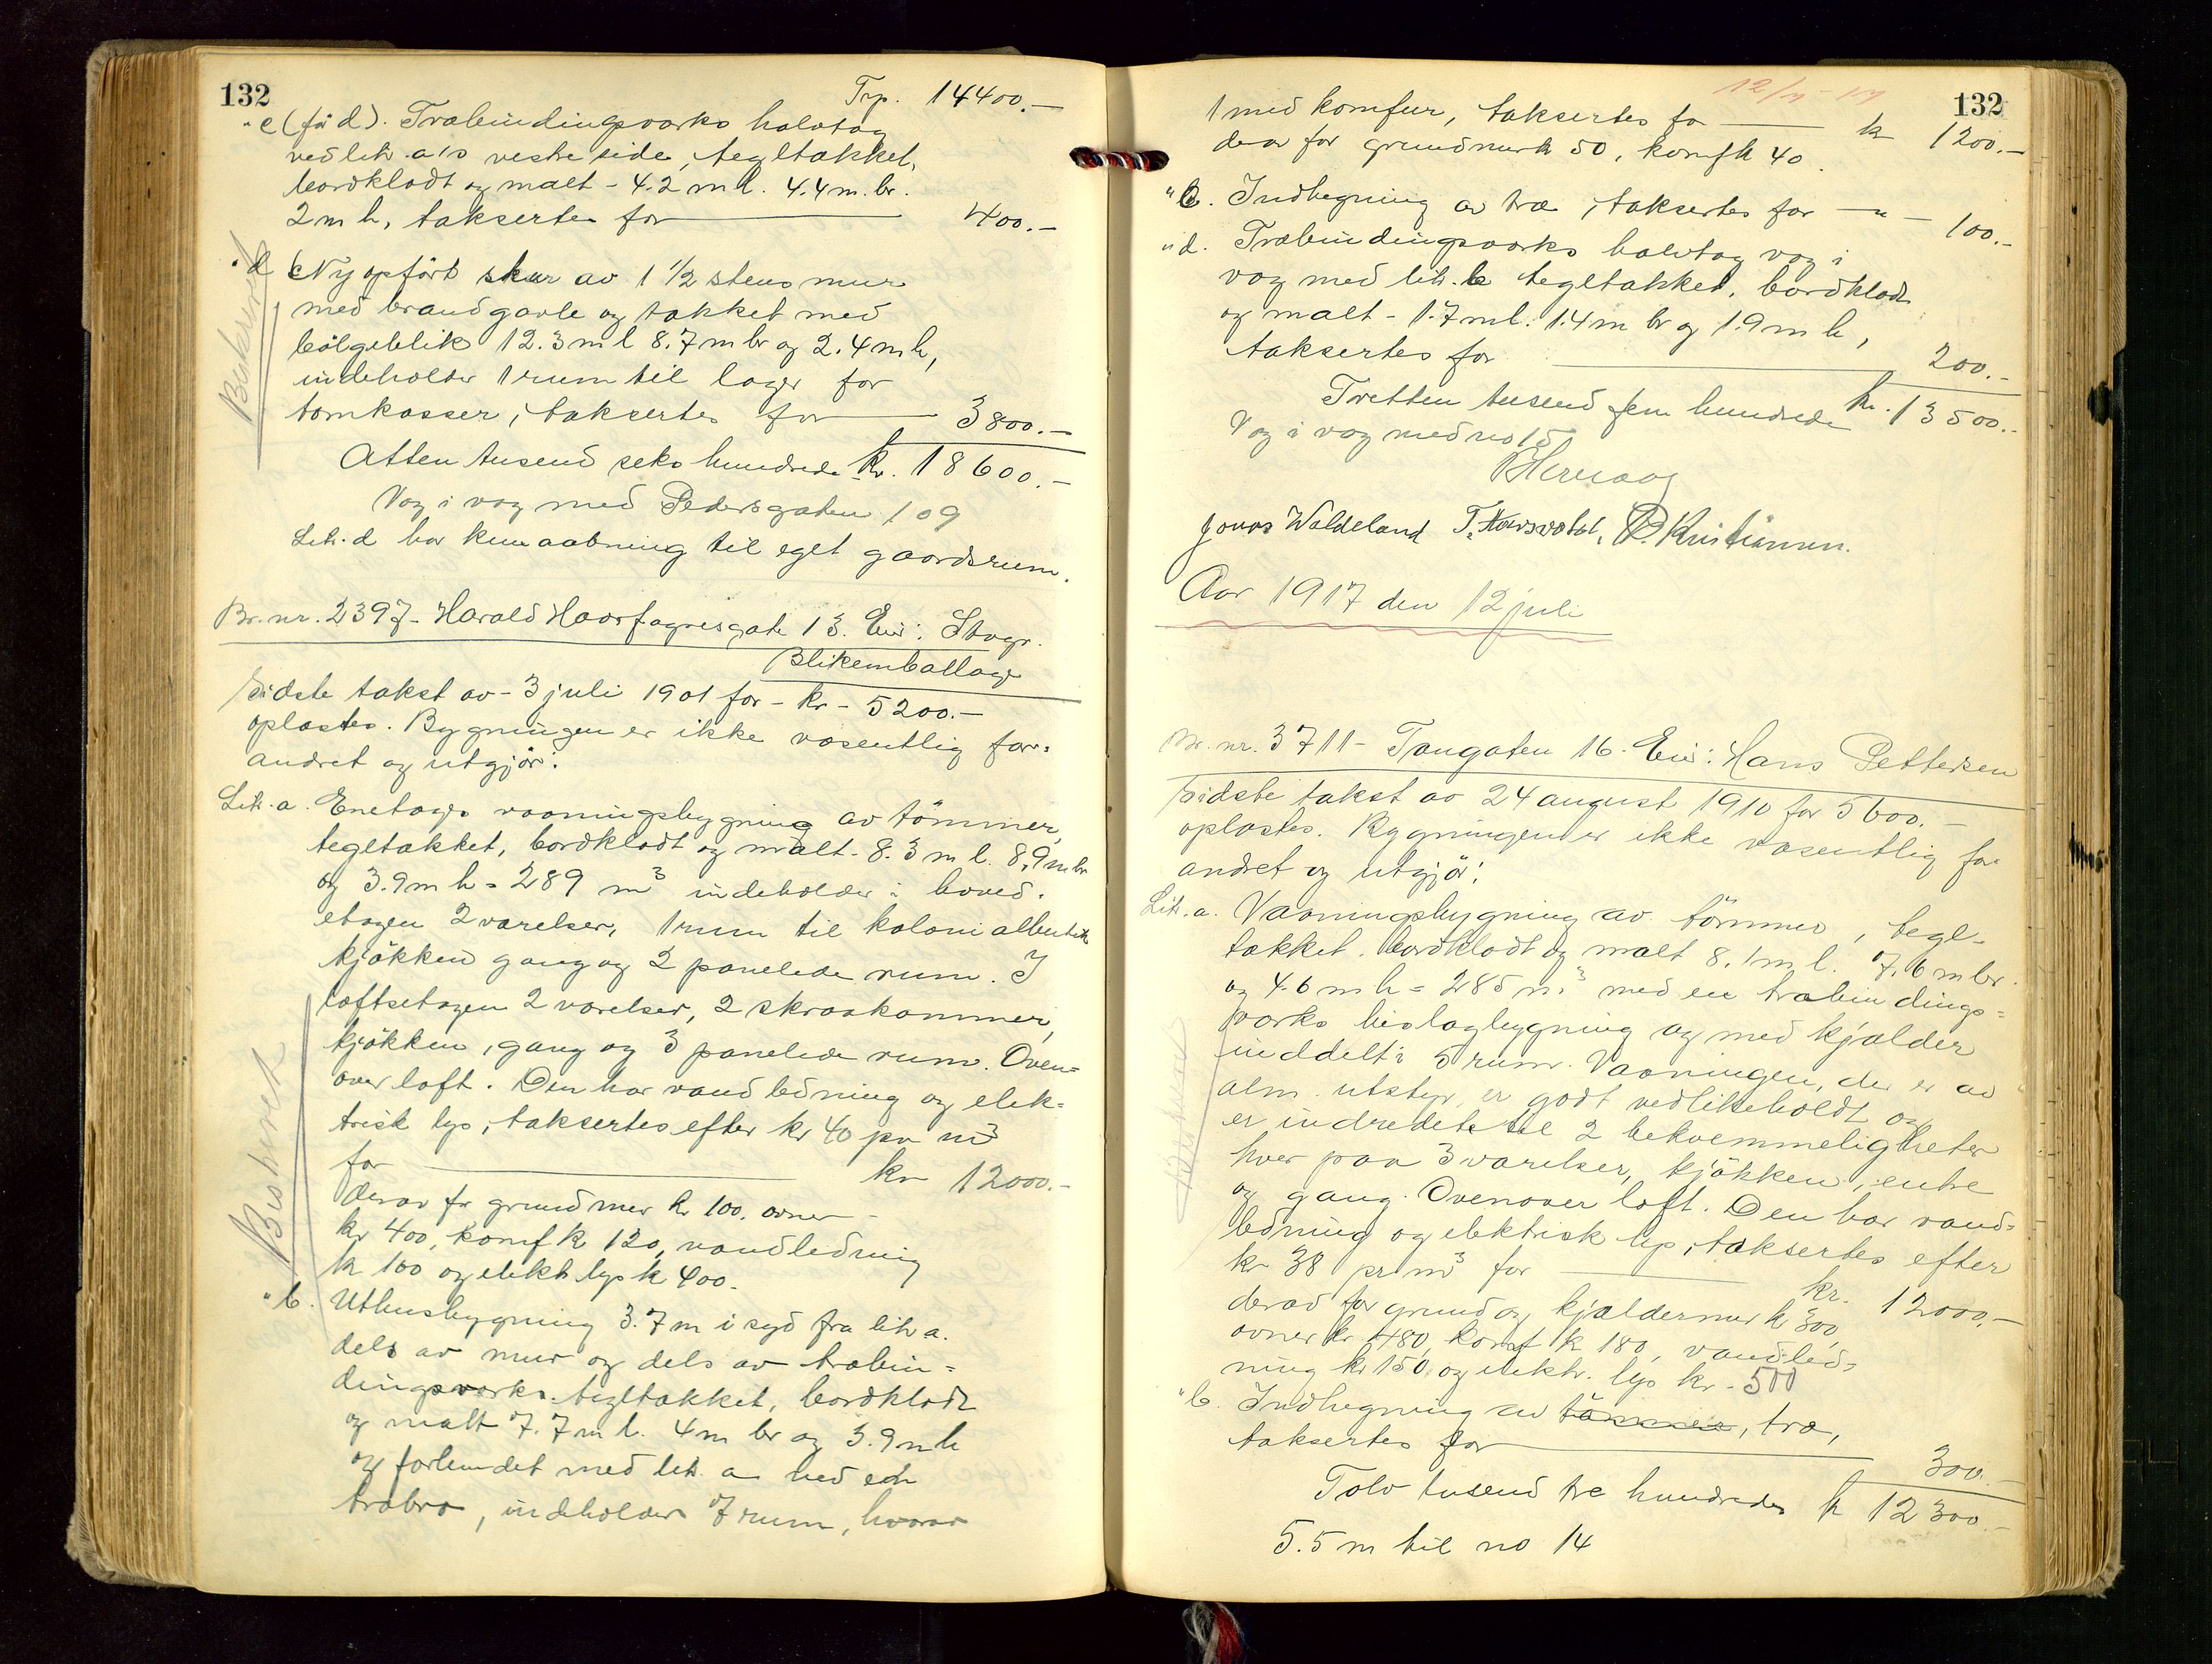 132
Trp. 14400.-
"c (før d). Træbindingsverks halvtag
ved litr. a's vestre side, tegltækket,
bordklædt og malt - 4.2 m l. 4.4 m. br.
2 m h, takseres for 400.-
"d Ny opført skur av 1 1/2 stens mur
med brandgavle og tækket med
bølgeblik 12.3 m l 8.7 m br og 2.4 m h,
indeholder 1 rum til lager for
tomkasser, takseres for 3800.-
Atten tusend seks hundrede kr. 18600.-
Væg i væg med Pedersgaten 109
Litr. d har kun aabning til eget gaardsrum.
Br. nr. 2397 - Harald Haarfagresgate 13. Eier: Stvgr.
Blikemballage
Sidste takst av - 3 juli 1901 for - kr - 5200.-
oplæstes. Bygningen er ikke væsentlig for=
andret og utgjør:
Litr. a. Enetages vaaningsbygning av tømmer,
tegltækket, bordklædt og malt - 8.3 m l. 8,9 m br
og 3.9 m h = 289 m3 indeholder i hoved.
etagen 2 værelser, 1 rum til kolonialbutik
kjøkken gang og 2 panelede rum. I
loftsetagen 2 værelser, 2 skraakammer,
kjøkken, gang og 3 panelede rum. Oven=
over loft. Den har vandledning og elek=
trisk lys, takseres efter kr 40 pr m3
for kr 12000.-
derav for grundmur kr 100. ovner
kr 400, komf kr 120, vandledning
kr 100 og elektr lys kr 400.
"b. Uthusbygning 3.7 m i syd fra litr a.
dels av mur og dels av træbin=
dingsverks. tegltækket, bordklædt
og malt 7.7 m l. 4 m br og 3.9 m h
og forbundet med litr. a ved en
træbro, indeholder 7 rum, hvorav
Beskrevet
Beskrevet
132
12/7 - 17
1 med komfur, takseres for kr 1200.-
derav for grundmur kr 50, komf kr 40.
"c. Indhegning av træ, takseres for - " - 100.-
"d. Træbindingsverks halvtag væg i
væg med litr. b tegltækket, bordklædt
og malt - 1.7 m l. 1.4 m br og 1.9 m h,
takseres for 200.-
Tretten tusend fem hundrede kr. 13500.-
Væg i væg med no 15
Jonas Waldeland T. P. Kristiansen.
Aar 1917 den 12 juli
Br. nr. 3711 - Tangaten 16. Eier: Hans Pettersen
Sidste takst av 24 august 1910 for 5600.-
oplæstes. Bygningen er ikke væsentlig for
andret og utgjør:
Litr. a. Vaaningsbygning av tømmer, tegl-
tækket, bordklædt og malt 8.1 m l. 7.6 m br.
og 4.6 m h = 285 m3 med en træbindings=
verks bislagbygning og med kjælder
inddelt i 5 rum. Vaaningen, der er av
alm. utstyr, er godt vedlikeholdt og
er indredet til 2 bekvemmeligheter
hver paa 3 værelser, kjøkken, entre
og gang. Ovenover loft. Den har vand=
ledning og elektrisk lys, takseres efter
kr 38 pr m3 for kr. 12000.-
derav for grund og kjældermur kr 300,
ovner kr 480, komf kr 180, vandled=
ning kr 150 og elektr. lys kr. 500
"b. Indhegning av tømmer, træ,
takseres for 300.-
Tolv tusend tre hundrede kr 12300.-
5.5 m til no 14